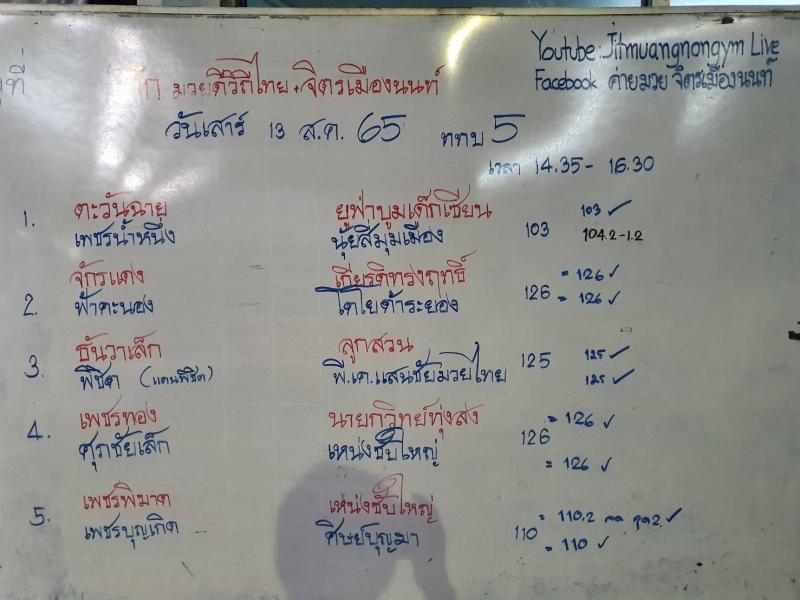 Youtube: Jitmuangnongym Live
Facebook ค่ายมวย จิตรเมืองนนท์
ที่
มวยดีวิถีไทย + จิตรเมืองนนท์
วันเสาร์ 13 ส.ค. 65 ททบ 5
เวลา 14.35 - 16.30
1. ตะวันฉาย ยูฟ่าบูมเด็กเซียน 103 ✓
เพชรน้ำหนึ่ง นุ้ยสี่มุมเมือง 103 104.2-1.2
จักรแดง เกียรติทรงฤทธิ์ = 126 ✓
2. ฟ้าคะนอง โตโยต้าระยอง 126 = 126 ✓
3. ธันวาเล็ก ลูกสวน 125 125 ✓
พิชิต (แดนพิชิต) พี.เค.แสนชัยมวยไทย 125 ✓
เพชรทอง นายกวิทย์ทุ่งสง = 126 ✓
4. ศุภชัยเล็ก เหน่งซับใหญ่ 126 = 126 ✓
เพชรพิฆาต เหน่งซับใหญ่ = 110.2 ✓
5. เพชรบุญเกิด ศิษย์บุญมา 110 = 110 ✓